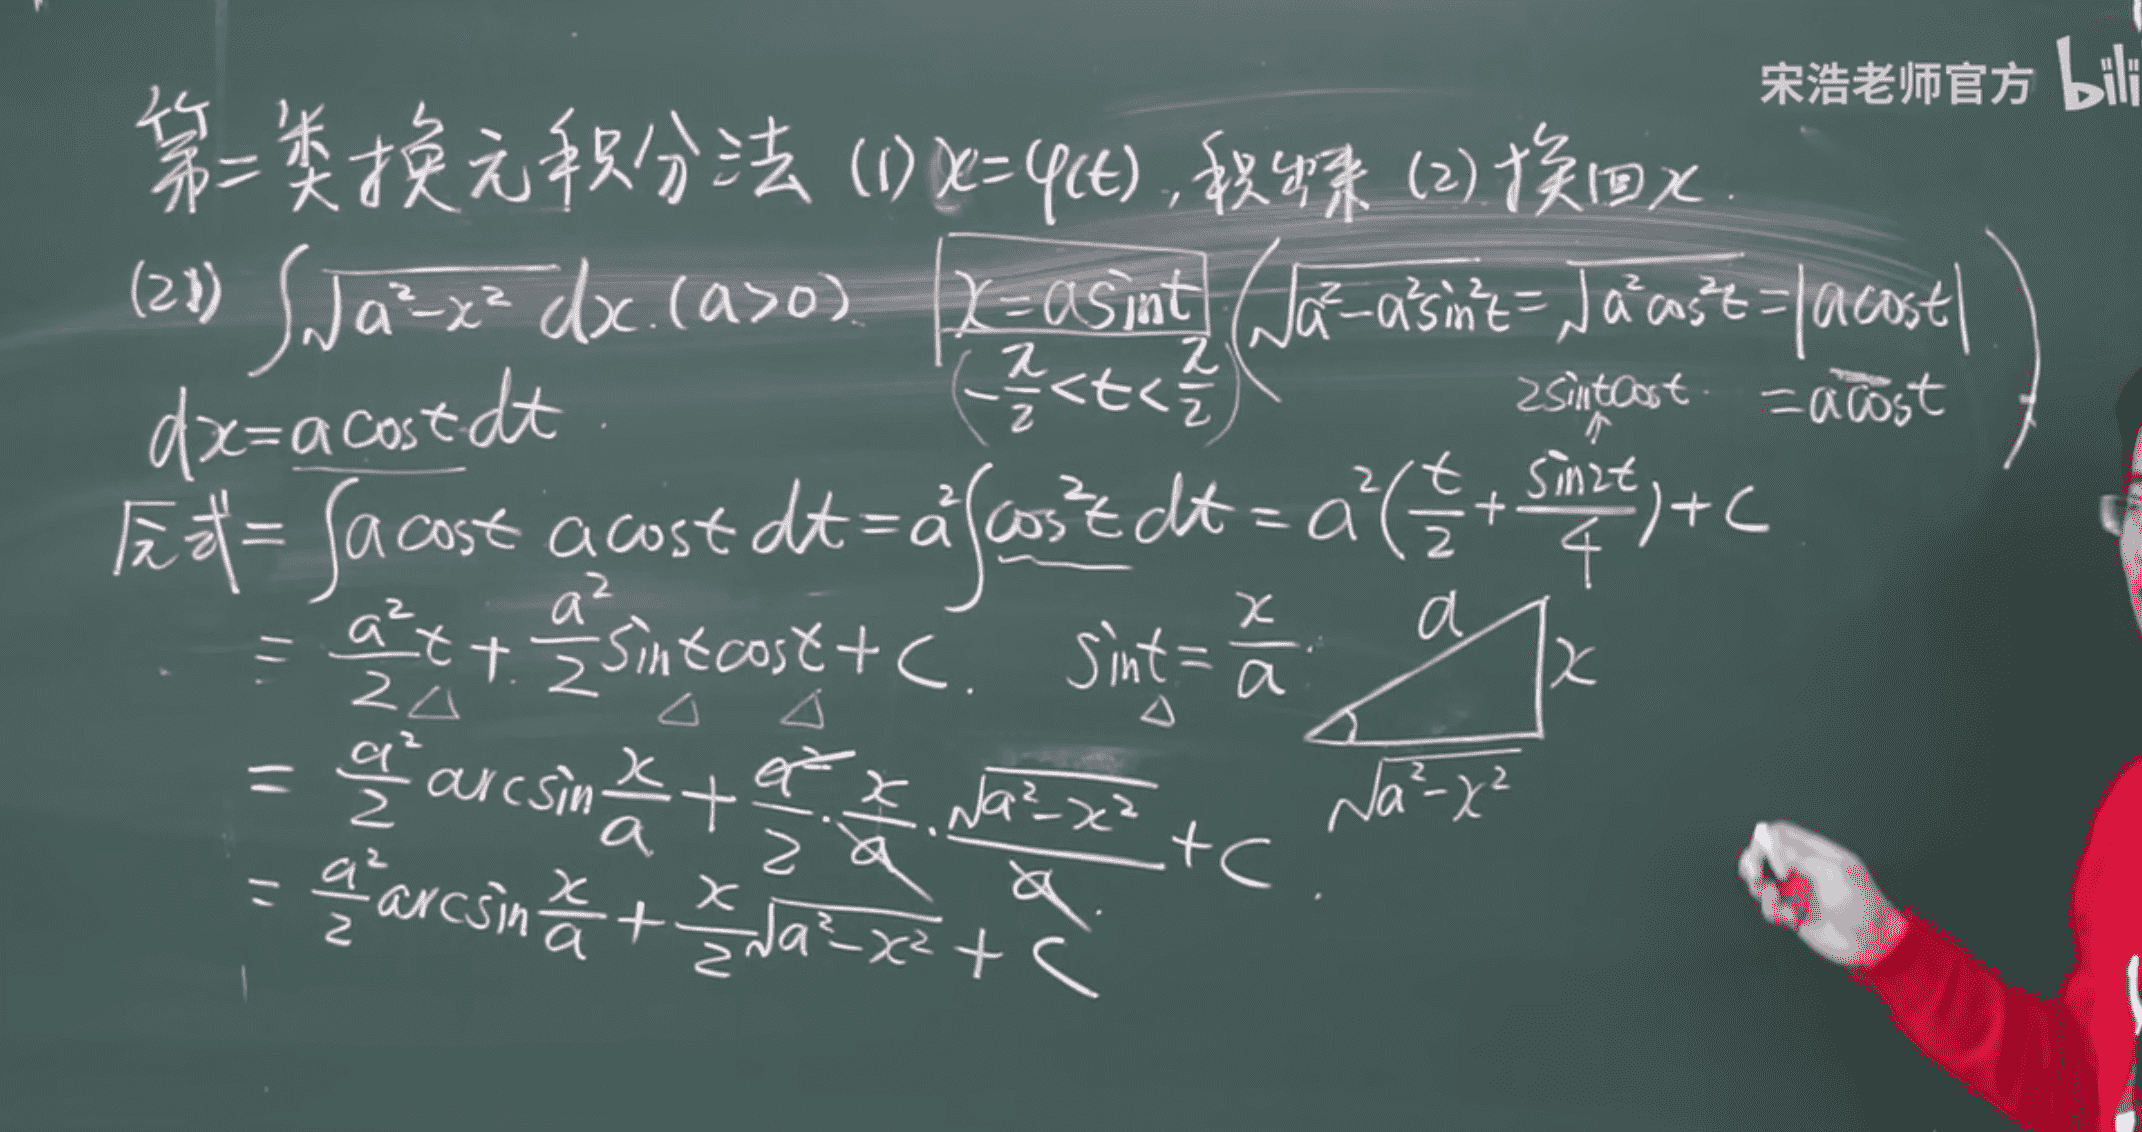 宋浩老师官方 bili
第二类换元积分法 (1) x=φ(t), 积出来 (2) 换回x.
(21) ∫√(a²-x²) dx. (a>0). x=asint (√(a²-a²sin²t)=√(a²cos²t)=|acost|
(-π/2<t<π/2) 2sintcost. =acost)
dx=acost dt
原式=∫acost acost dt=a²∫cos²t dt=a²(t/2+sin2t/4)+C
=a²/2 t+a²/2 sintcost+C. sint=x/a. a x
=a²/2 arcsin x/a+a²/2·x/a·√(a²-x²)/a+C. √(a²-x²)
=a²/2 arcsin x/a+x/2√(a²-x²)+C